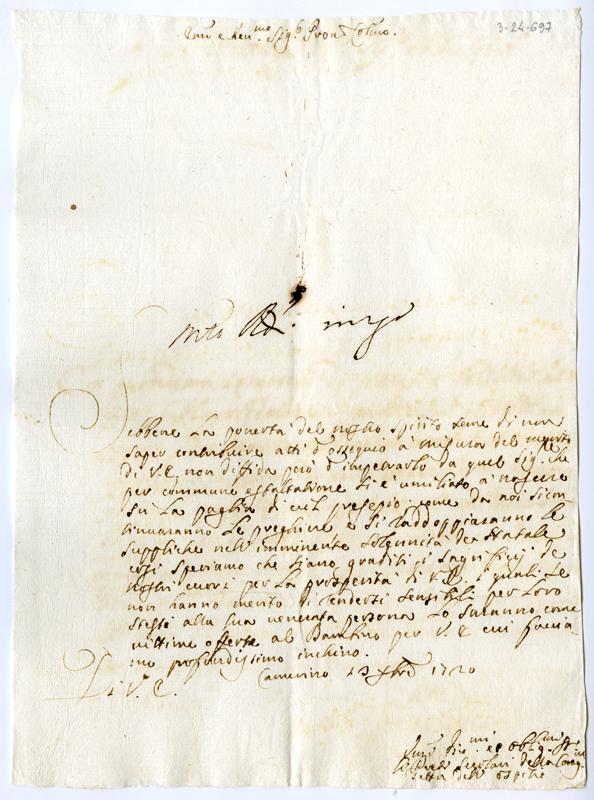 3-24-697
Sig.
Sebbene la povertà del nostro spirito teme di non
saper contribuire atti d'ossequio à misura del merito
di V.E. non diffida però d'impetrarlo da quel Sig. che
per commune esaltatione si è umiliato à nascere
su la paglia di vil presepio: come da noi si con
tinuaranno le preghiere e si raddoppiaranno le
suppliche nell'imminente solennità de Natale
così speriamo che siano graditi i sagrifizi de
nostri cuori per la prosperità di V.E. i quali se
non hanno merito di rendersi sensibili per loro
stessi alla sua venerata persona lo saranno come
vittime offerte al Bambino per V.E. cui faccia
mo profondissimo inchino.
Di V.E. Camerino 1720
della Cong
dell'